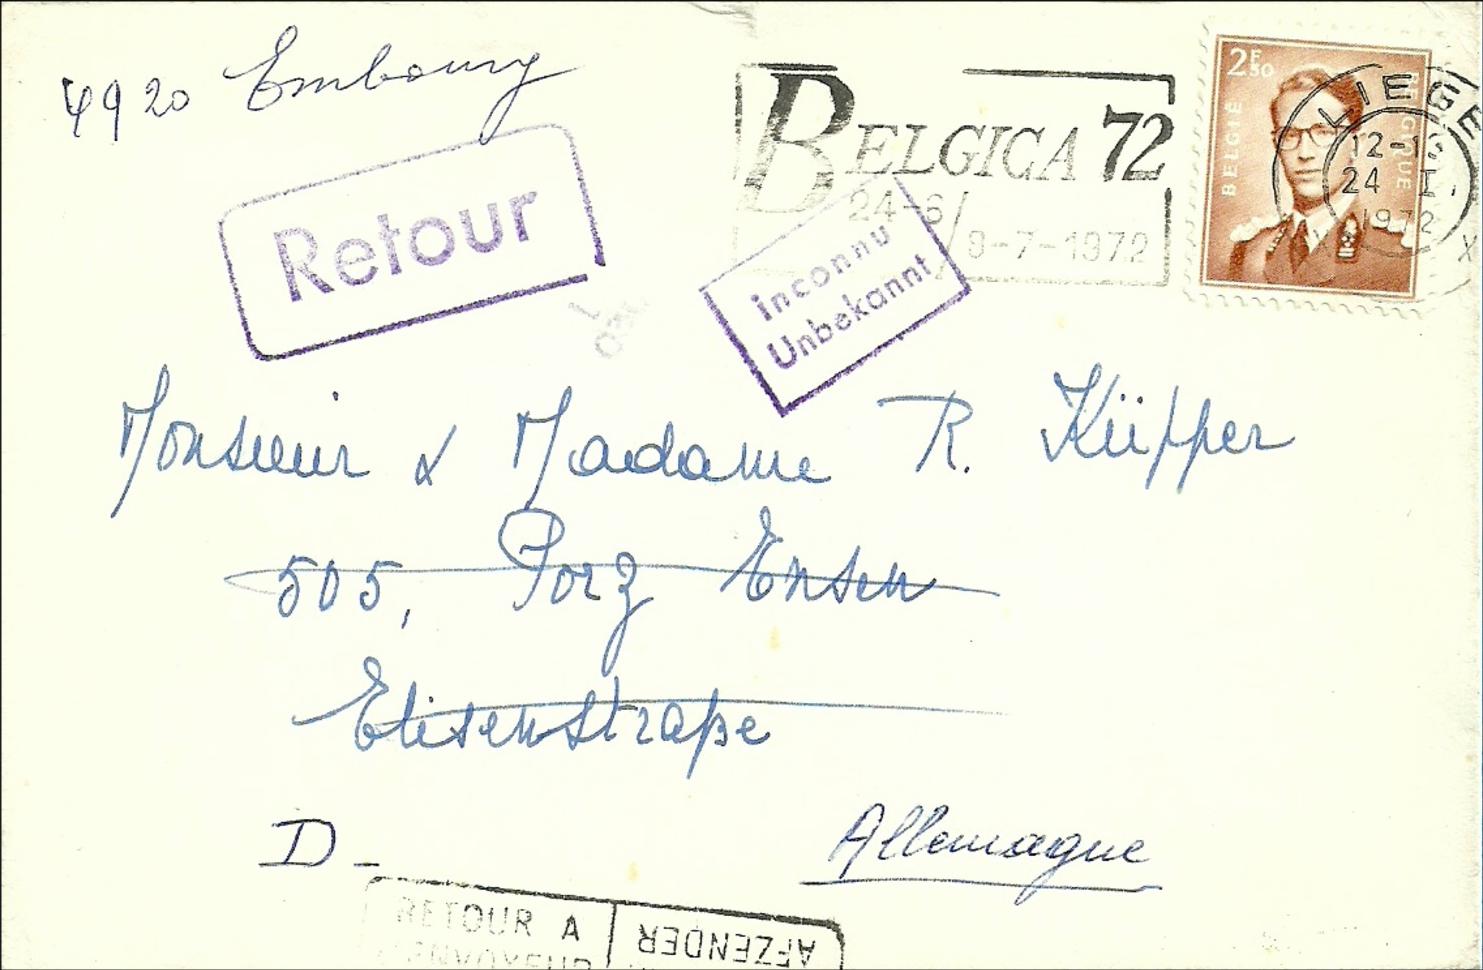 4920 Embourg
Retour
BELGICA 72
24-6/
9-7-1972
2F50
BELGIË
BELGIQUE
LIEGE
12-13
24 I
1972
X
inconnu
Unbekannt
Monsieur & Madame R. Küpper
505, Porz Ensen
Elisenstraße
D -
Allemagne
RETOUR A
AFZENDER